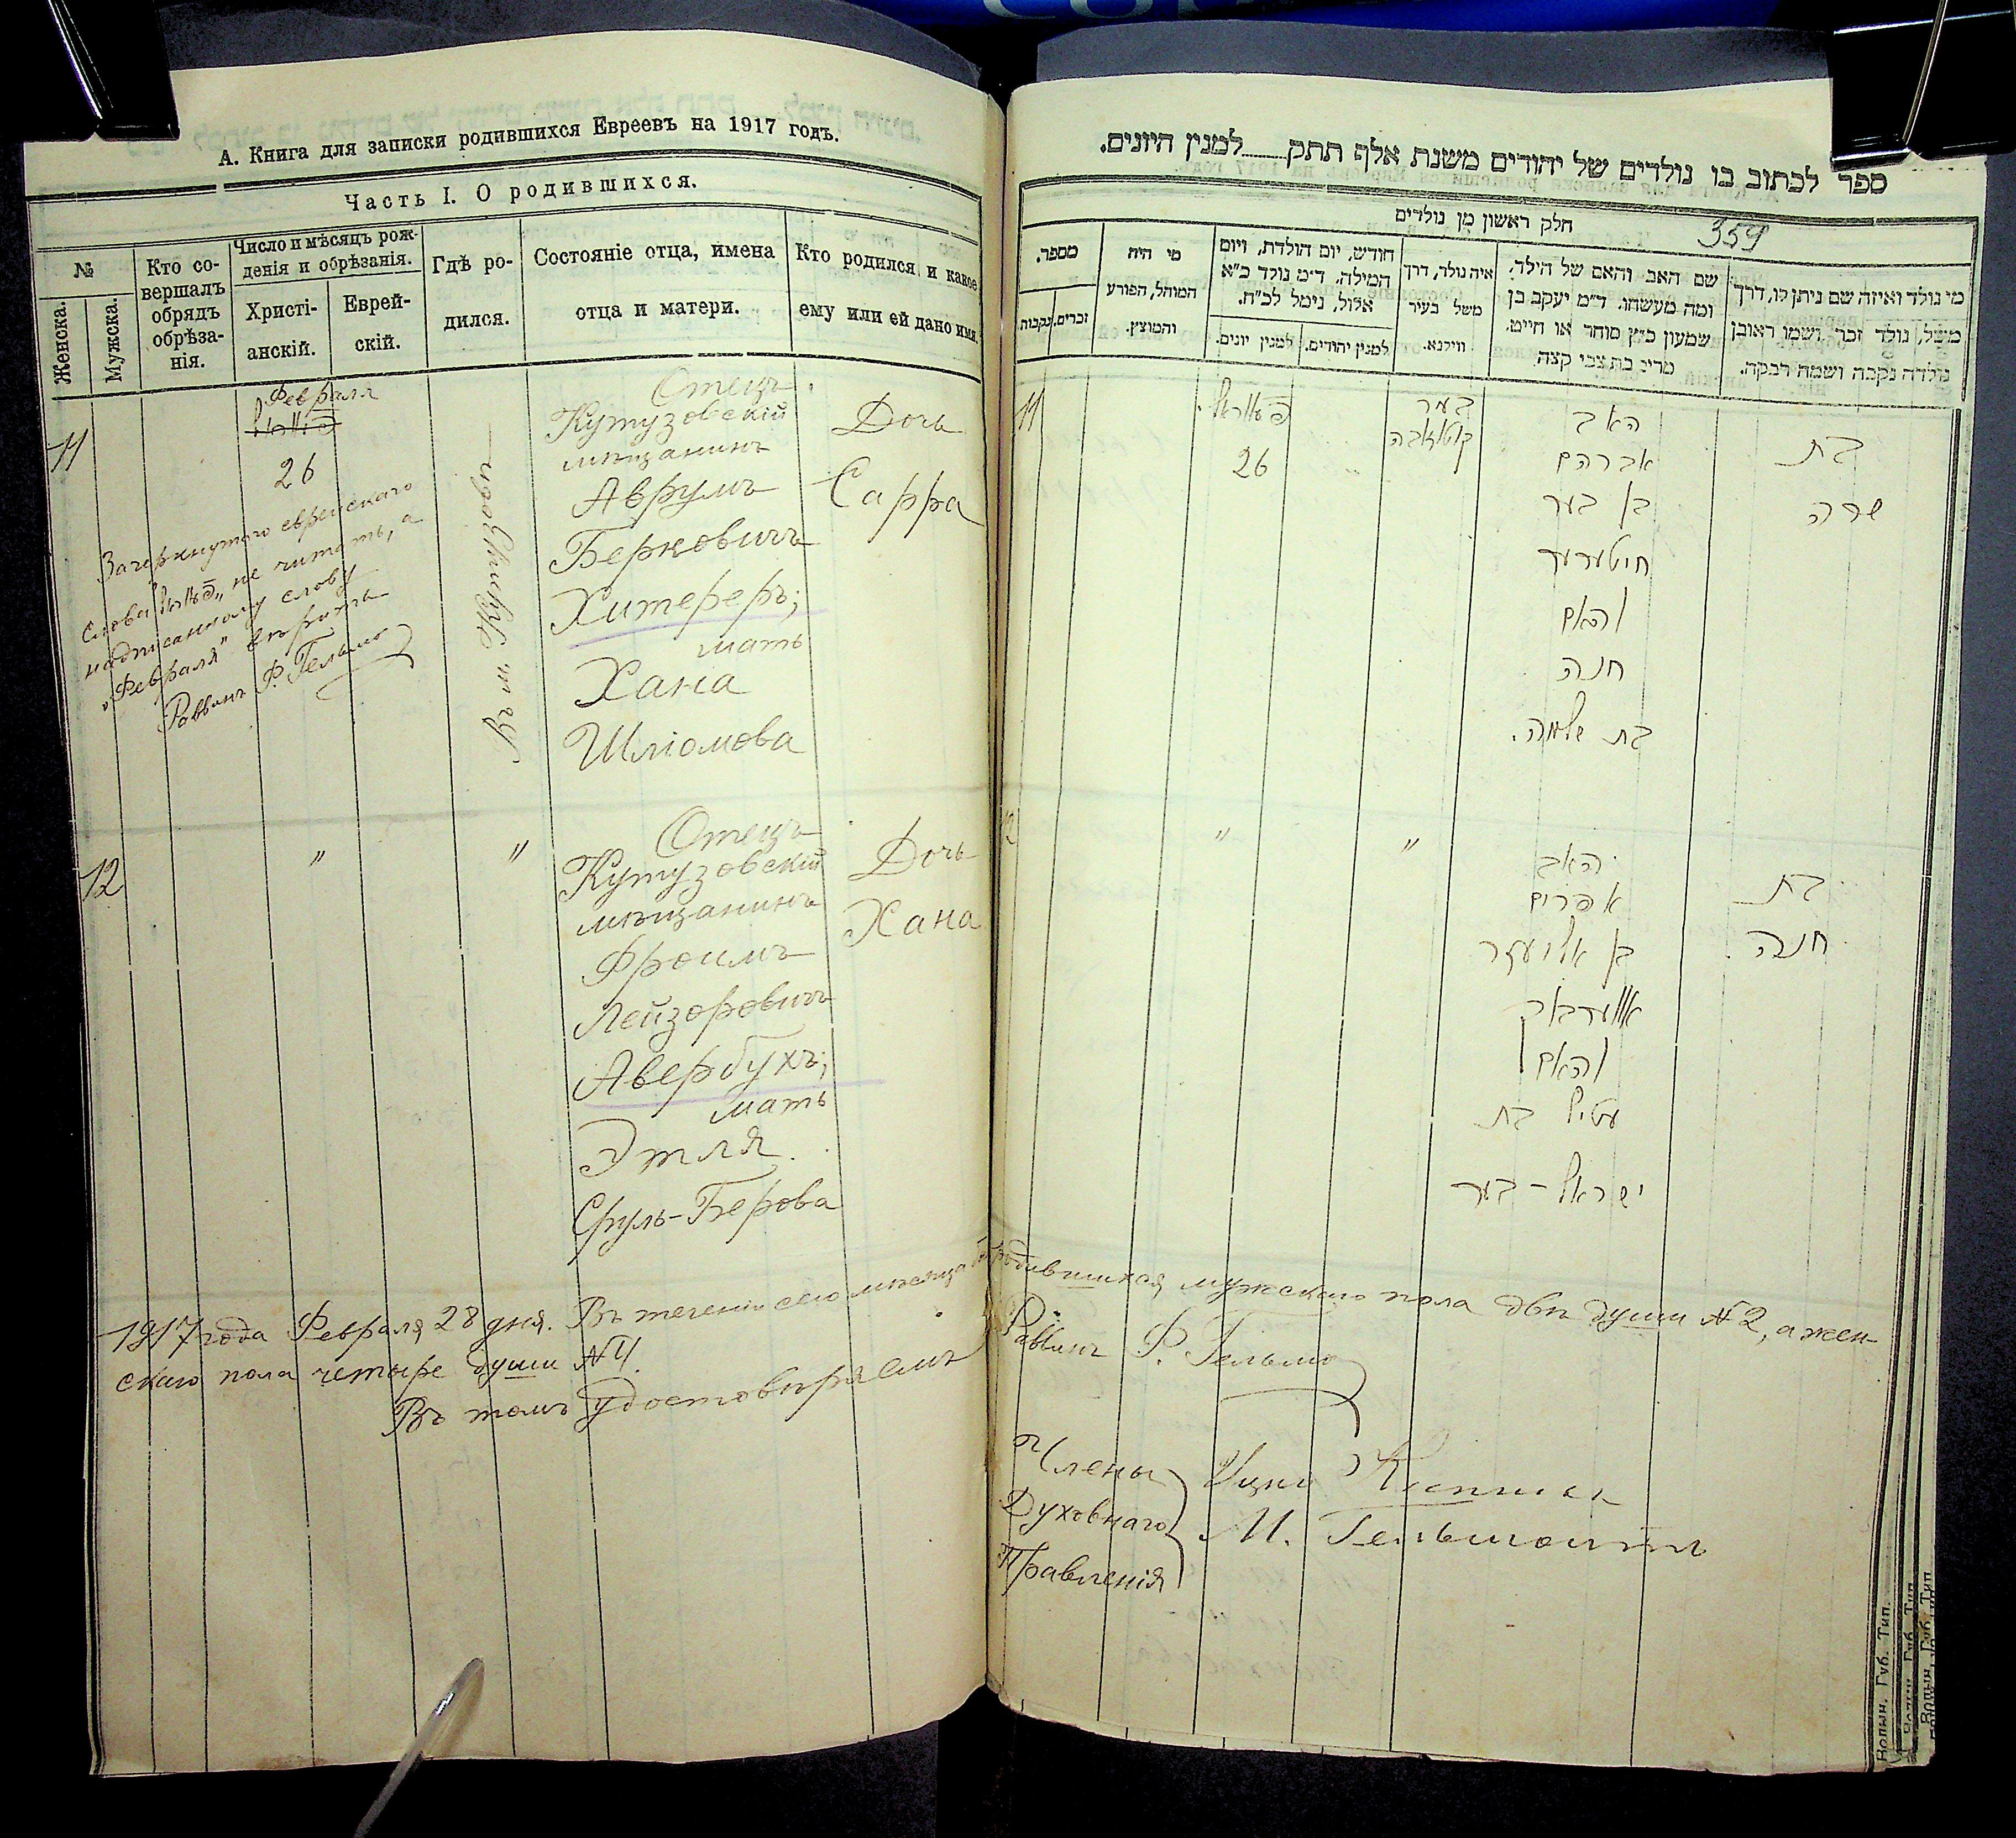 А. Книга для записки родившихся Евреевъ на 1917 годъ.
Часть I. О родившихся.
№
Женска.
Мужска.
Кто со-
вершалъ
обрядъ
обрѣза-
нія.
Число и мѣсяцъ рож-
денія и обрѣзанія.
Христі-
анскій.
Еврей-
скій.
Гдѣ ро-
дился.
Состояніе отца, имена
отца и матери.
Кто родился, и какое
ему или ей дано имя.
11
Февраля
26
Зачеркнутого еврейскаго
слова не читать, а
надписанному слову
„Февраля" вѣрить
Раввинъ Ф.
Отецъ
Кутузовскій
мѣщанинъ
Аврумъ
Берковичъ
Хитереръ;
мать
Хана
Шліомова
Дочь
Сарра
12
"
"
Отецъ
Кутузовскій
мѣщанинъ
Фроимъ
Лейзоровичъ
Авербухъ;
мать
Этля
Сруль-Берова
Дочь
Хана
1917 года Февраля 28 дня. Въ теченіи сего мѣсяца
скаго пола четыре души №4.
Въ томъ удостовѣряемъ
ספר לכתוב בו נולדים של יהודים משנת אלף תתק למנין היונים.
חלק ראשון מן נולדים
359
מספר.
זכרים.
נקבות
מי היה
המוהל, הפורע
והמוצץ.
חודש, יום הולדת, ויום
המילה, ד״מ נולד כ״א
אלול, נימל לכ״ח.
למנין יהודים.
למנין יונים.
איה נולד, דרך
משל בעיר
ווילנא.
שם האב והאם של הילד,
ומה מעשהו. ד״מ יעקב בן
שמעון כ״ץ סוחר או חייט.
מרים בת צבי קצה
מי נולד ואיזה שם ניתן לו, דרך
משל, נולד זכר ושמו ראובן
נולדה נקבה ושמה רבקה.
11
26
האב
אברהם
בן בער
חיטערער
והאם
חנה
בת שלמה.
בת
שרה
12
"
"
האב
אפרים
בן אליעזר
אווערבאך
והאם
עטיל בת
ישראל-בער
בת
חנה
родившихся мужскаго пола двѣ души №2, а жен-
Раввинъ Ф.
Члены
Духовнаго
Правленія
М.
Волын. Губ. Тип.
Волын. Губ. Тип.
Волын. Губ. Тип.